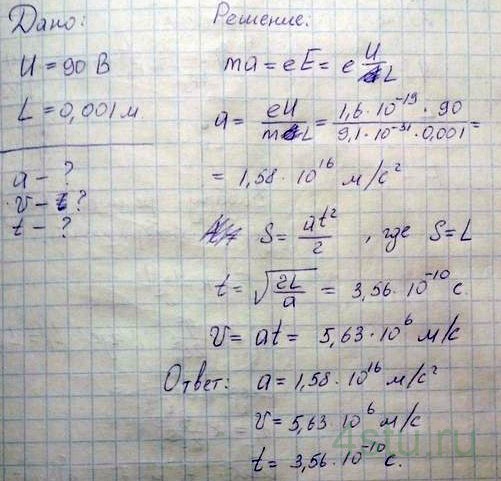 Дано:
U = 90 В
L = 0,001 м
a – ?
v – ?
t – ?
Решение:
ma = eE = e U/L
a = eU/mL = 1,6·10⁻¹⁹·90/9,1·10⁻³¹·0,001 =
= 1,58·10¹⁶ м/с²
S = at²/2 , где S=L
t = √(2L/a) = 3,56·10⁻¹⁰ с.
v = at = 5,63·10⁶ м/с
Ответ: a = 1,58·10¹⁶ м/с²
v = 5,63·10⁶ м/с
t = 3,56·10⁻¹⁰ с.